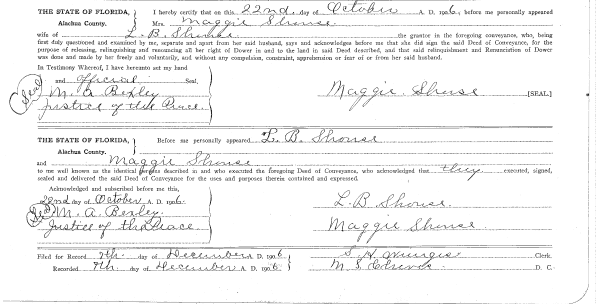 THE STATE OF FLORIDA, I hereby certify that on this 22nd day of October A. D. 1906, before me personally appeared
Alachua County. Mrs. Maggie Shouse
wife of L. B. Shouse the grantor in the foregoing conveyance, who, being
first duly questioned and examined by me, separate and apart from her said husband, says and acknowledges before me that she did sign the said Deed of Conveyance, for the
purpose of releasing, relinquishing and renouncing all her right of Dower in and to the land in said Deed described, and that said relinquishment and Renunciation of Dower
was done and made by her freely and voluntarily, and without any compulsion, constraint, apprehension or fear of or from her said husband.
In Testimony Whereof, I have hereunto set my hand
and official Seal,
(Seal) M. A. Bexley Maggie Shouse [SEAL]
Justice of the Peace.
THE STATE OF FLORIDA, Before me personally appeared L. B. Shouse
Alachua County.
and Maggie Shouse
to me well known as the identical persons described in and who executed the foregoing Deed of Conveyance, who acknowledged that they executed, signed,
sealed and delivered the said Deed of Conveyance for the uses and purposes therein contained and expressed.
Acknowledged and subscribed before me this,
22nd day of October A. D. 1906. L. B. Shouse.
(Seal) M. A. Bexley. Maggie Shouse
Justice of the Peace
Filed for Record 7th. day of December A. D. 1906 S. H. Clerk.
Recorded 7th. day of December A. D. 1906. M. S. D. C.